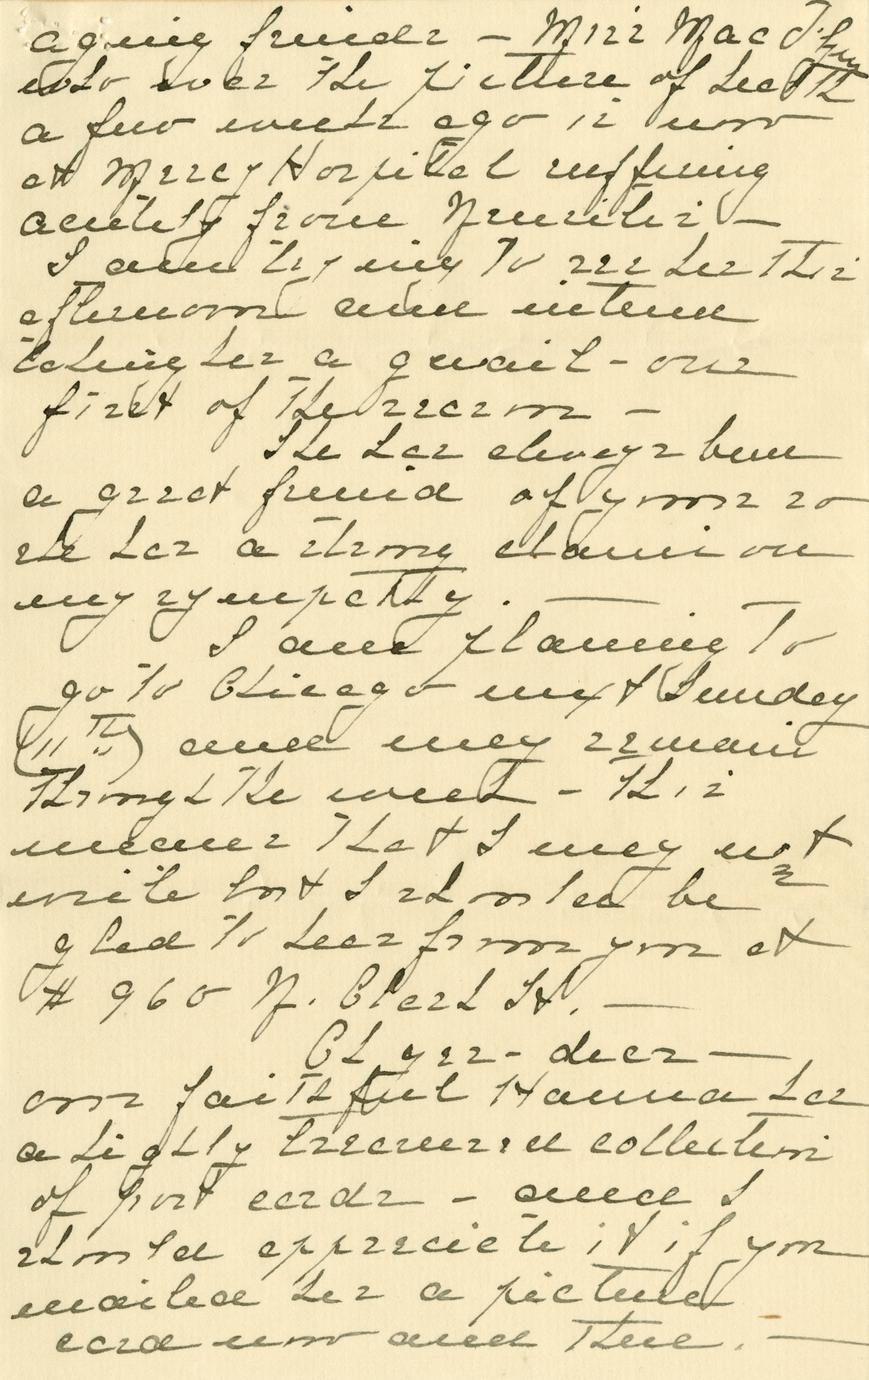 aging friends — Miss Mac
who was the picture of health
a few weeks ago is now
at Mercy Hospital suffering
acutely from Neuritis —
I am trying to see her this
afternoon and intend
taking her a quail - our
first of the season —
She has always been
a great friend of yours so
she has a strong claim on
my sympathy. —
I am planning to
go to Chicago next Sunday
(11th) and may remain
through the week - this
means that I may not
write but I should be
glad to hear from you at
# 960 N. Clark St. —
Oh yes - dear —
our faithful Hanna has
a highly treasured collection
of post cards - and I
should appreciate it if you
mailed her a picture
card now and then. —